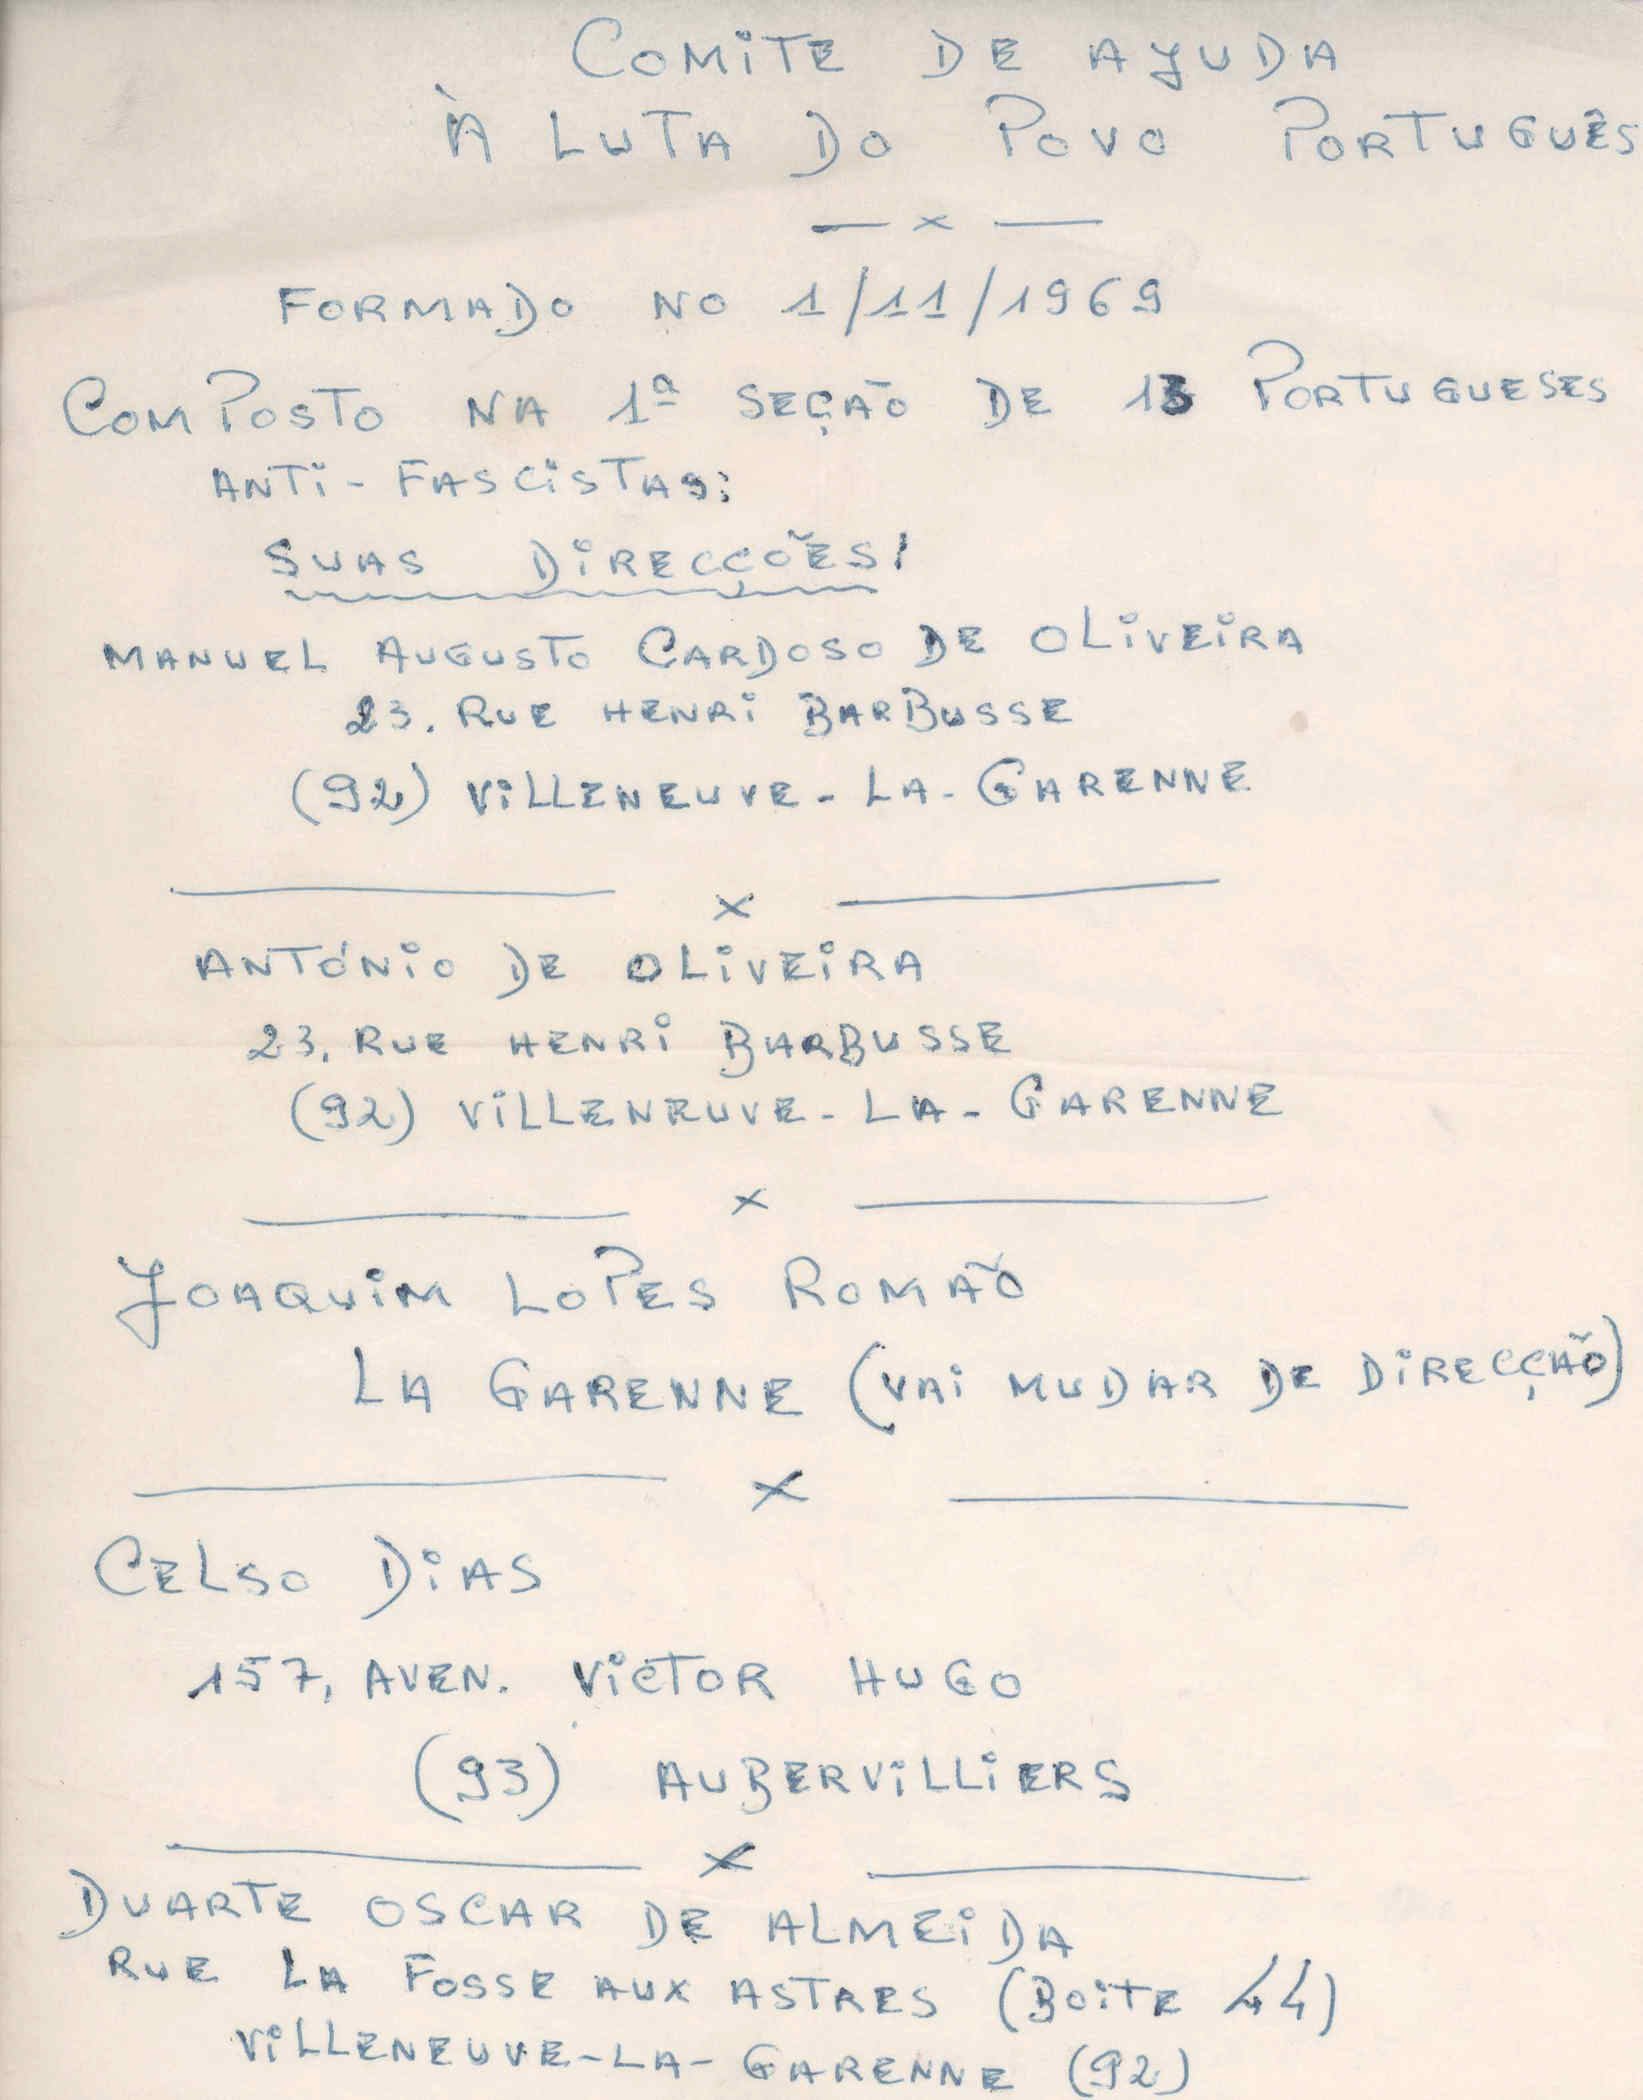 COMITE DE AYUDA
À LUTA DO POVO PORTUGUÊS
— x —
FORMADO NO 1/11/1969
COMPOSTO NA 1ª SEÇÃO DE 13 PORTUGUESES
ANTI-FASCISTAS:
SUAS DIRECÇÕES!
MANUEL AUGUSTO CARDOSO DE OLIVEIRA
23. RUE HENRI BARBUSSE
(92) VILLENEUVE-LA-GARENNE
— x —
ANTÓNIO DE OLIVEIRA
23, RUE HENRI BARBUSSE
(92) VILLENEUVE-LA-GARENNE
— x —
JOAQUIM LOPES ROMÃO
LA GARENNE (VAI MUDAR DE DIRECÇÃO)
— x —
CELSO DIAS
157, AVEN. VICTOR HUGO
(93) AUBERVILLIERS
— x —
DUARTE OSCAR DE ALMEIDA
RUE LA FOSSE AUX ASTRES (BOITE 44)
VILLENEUVE-LA-GARENNE (92)